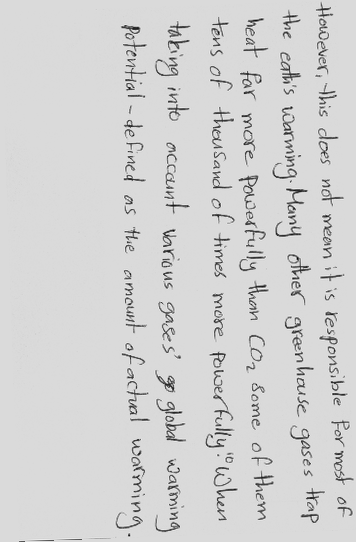 However, this does not mean it is responsible for most of
the eath's warming. Many other greenhouse gases trap
heat far more powerfully than CO₂ some of them
tens of thousand of times more powerfully." When
taking into account various gases' global warming
Potential - defined as the amount of actual warming.